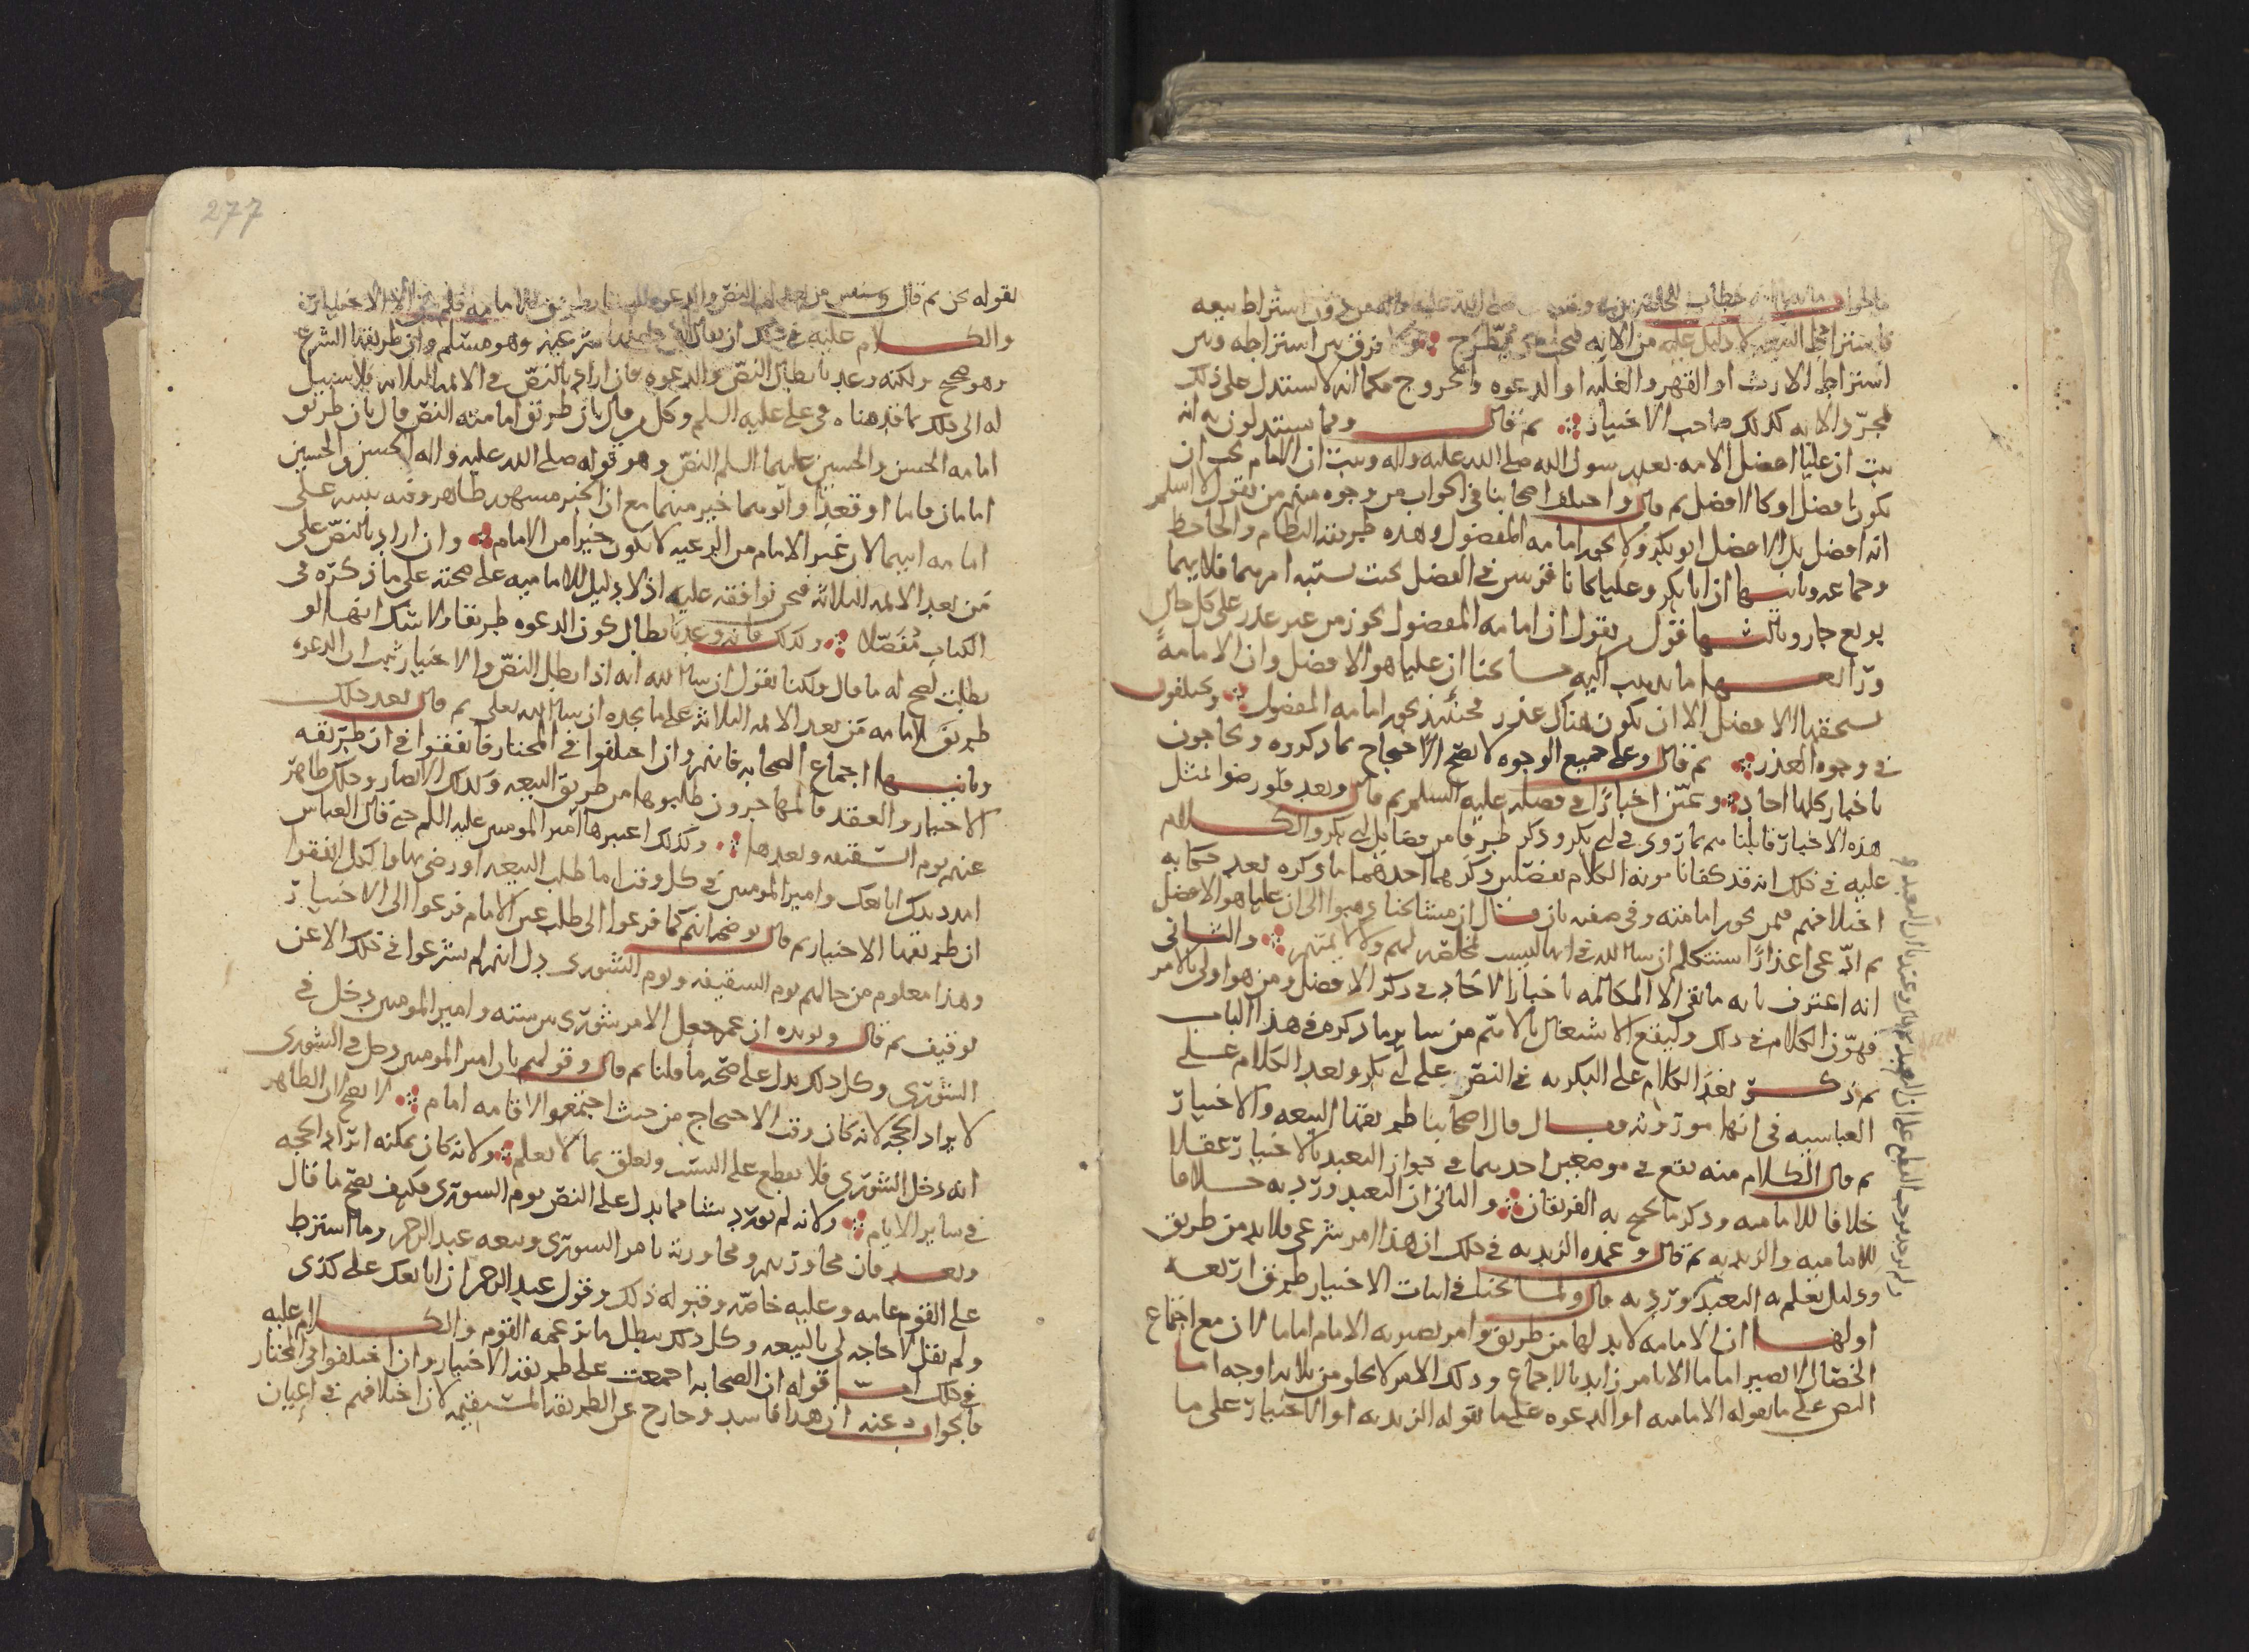 اشتراط الارث او القهر والغلبه او الدعوه والخروج فكما انه لا يستدل على ذلك
بمجرد الايه كذلك صاحب الاختيار ثم قال ومما يستدلون به انه
ثبت ان عليا افضل الامه بعد رسول الله صلى الله عليه واله وثبت ان الامام يجب ان
يكون افضل او كالافضل ثم قال واختلف اصحابنا في الجواب من وجوه منهم من يقول لا اسلم
انه افضل بل الافضل ابو بكر ولا يجوز امامه المفضول وهذه طريقه النظام والجاحظ
وجماعه وثانيها ان ابا بكر وعليا كانا في الفضل بحيث يشتبه امرهما فلايهما
بويع جاز وثالثها قول من يقول ان امامه المفضول يجوز من غير عذر على كل حال
ورابعها ما يذهب اليه مشايخنا ان عليا هو الافضل وان الامامه
يستحقها الافضل الا ان يكون هناك عذر فحينئذ يجوز امامه المفضول ويختلفون
في وجوه العذر ثم قال وعلى جميع الوجوه لا يصح الاحتجاج بما ذكروه ويحاجون
باخبار كلها احاد وعين اخبارا في فضله عليه السلم ثم قال وبعد فلو رضوا بمثل
هذه الاخبار قابلناهم بما روي في ابي بكر وذكر طرفا من فضايل ابي بكر والكلام
عليه في ذلك انه قد كفانا مونه الكلام بفصلين ذكرهما احدهما ما ذكره بعد حكايه
اختلافهم فيمن يجوز امامته وفي صفته بان قال ان مشايخنا ذهبوا الى ان عليا هو الافضل
ثم ادعى اعذارا سنتكلم ان شا الله في انها ليست مخلصه لهم ولا لايمتهم والثاني
انه اعترف بانه ما بقي الا المكالمه باخبار الاحاد في ذكر الافضل ومن هو اولى بالامر
فهون الكلام في ذلك وليقع الاشتغال بالاهم من ساير ما ذكره في هذا الباب
ثم ذكر بعد الكلام على البكريه في النص على ابي بكر وبعد الكلام على
العباسيه في انها موروثه فقال قال اصحابنا طريقتها البيعه والاختيار
ثم قال الكلام منه يقع في موضعين احدهما في جواز التعبد بالاختيار عقلا
خلافا للاماميه وذكر ما يحتج به الفريقان والثاني ان التعبد ورد به خلافا
للاماميه والزيديه ثم قال وعمده الزيديه في ذلك ان هذا امر شرعي فلا بد من طريق
ودليل نعلم به التعبد وورد به قال ولمشايخنا في اثبات الاختيار طرق اربعه
اولها ان الامامه لا بد لها من طريق وامر يصير به الامام اماما لان مع اجتماع
الخصال لا يصير اماما الا بامر زايد بالاجماع وذلك الامر لا يخلو من ثلاثه اوجه اما
النص على ما يقوله الاماميه او الدعوه على ما يقوله الزيديه او الاختيار على ما
277
وهو صحيح ولكنه وعد بابطال النص والدعوه فان اراد بالنص في الايمه الثلاثه فلا سبيل
له الى ذلك بما قدمناه في علي عليه السلم وكل من قال بان طريق امامته النص قال بان طريق
امامه الحسن والحسين عليهما السلم النص وهو قوله صلى الله عليه واله الحسن والحسين
امامان قاما او قعدا وابوهما خير منهما مع ان الخبر مشهور ظاهر وفيه تنبيه على
امامه ابيهما لان غير الامام من الرعيه لا يكون خيرا من الامام وان اراد بالنص على
من بعد الايمه الثلاثه فنحن نوافقه عليه اذ لا دليل للاماميه على صحته على ما نذكره في
الكتاب مفصلا وكذلك فانه وعد بابطال كون الدعوه طريقا ولا شك انها لو
بطلت لصح له ما قال ولكنا نقول ان شا الله انه اذا بطل النص والاختيار ثبت ان الدعوه
طريق الامامه من بعد الايمه الثلاثه على ما نحده ان شا الله تعالى ثم قال بعد ذلك
وثانيها اجماع الصحابه فانهم وان اختلفوا في المختار فاتفقوا في ان طريقه
الاختيار والعقد فالمهاجرون طلبوها من طريق البيعه وكذلك الانصار وذلك ظاهر
عنهم يوم السقيفه وبعدها وكذلك اعتبرها امير المومنين عليه السلم حتى قال العباس
امدد يدك ابايعك وامير المومنين في كل وقت اما طلب البيعه او رضي بها فالكل اتفقوا
ان طريقها الاختيار ثم قال يوضحه انهم كما فزعوا الى طلب عين الامام فزعوا الى الاختيار
وهذا معلوم من حالهم يوم السقيفه ويوم الشورى دل انهم لم يشرعوا في ذلك الا عن
توقيف ثم قال ويويده ان عمر جعل الامر شورى بين سته وامير المومنين دخل في
الشورى وكل ذلك يدل على صحه ما قلنا ثم قال وقولهم بان امير المومنين دخل في الشورى
لايراد الحجه لانه كان وقت الاحتجاج من حيث اجتمعوا لاقامه امام لا يصح لان الظاهر
انه دخل الشورى فلا يقطع على السبب ويعلق بما لا يعلم ولانه كان يمكنه ايراد الحجه
في ساير الايام ولانه لم يورد شيا مما يدل على النص يوم الشورى فكيف يصح ما قال
وبعد فان محاورتهم ومحاورته بامر الشورى وبيعه عبد الرحمن وما اشترط
على القوم عامه وعليه خاصه وقبوله ذلك وقول عبد الرحمن ابايعك على كذى
ولم يقل لا حاجه لي بالبيعه وكل ذلك يبطل ما تزعمه القوم والكلام عليه
في ذلك اما قوله ان الصحابه اجمعت على طريقه الاختيار وان اختلفوا في المختار
فالجواب عنه ان هذا فاسد وخارج عن الطريقه المستقيمه لان اختلافهم في اعيان